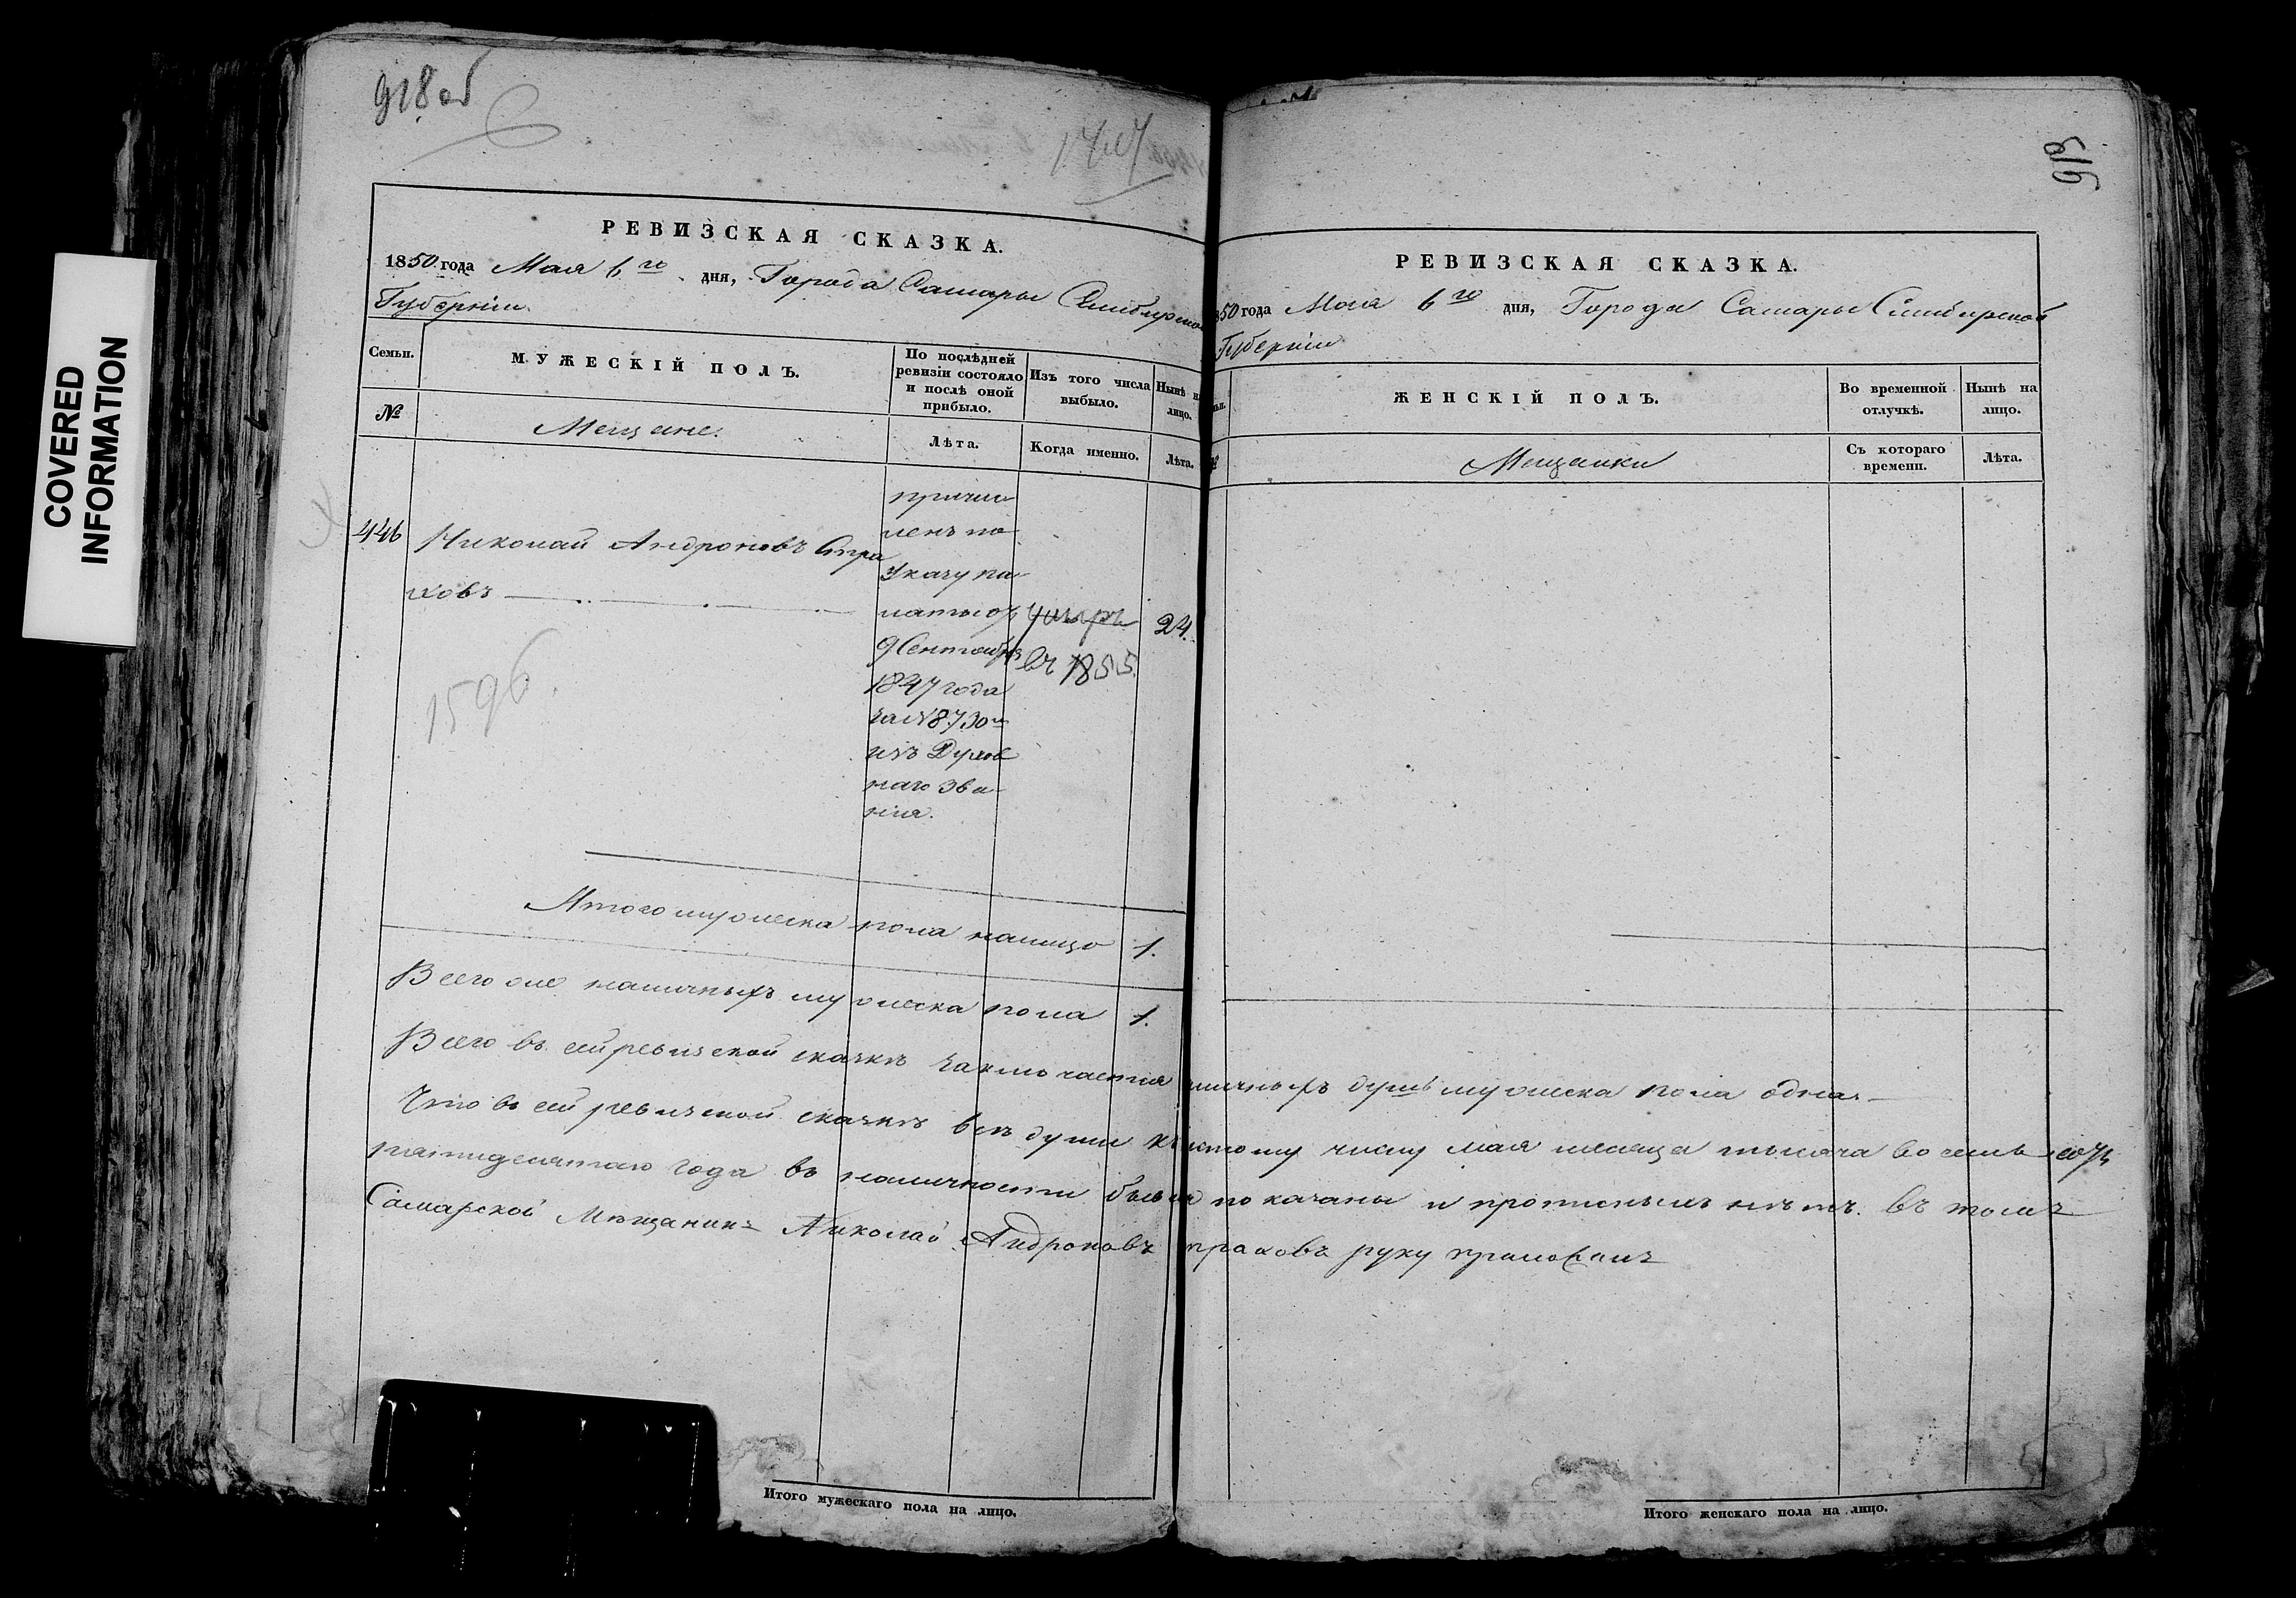 COVERED
INFORMATION
918 об
919
РЕВИЗСКАЯ СКАЗКА.
1850 года Мая 6 го дня, Города Самары Симбирской
Губерніи.
Семьи.
МУЖЕСКІЙ ПОЛЪ.
По послѣдней ревизіи состояло и послѣ оной прибыло.
Изъ того числа выбыло.
Нынѣ на лицо.
№
Мещане.
Лѣта.
Когда именно.
Лѣта.
446
Николай Андроновъ Стра
ховъ
причис
ленъ по
указу па
латы отъ
9 Сентября
1847 года
за № 8730 м
изъ Духов
наго зва
нія.
умеръ
въ 1855.
24.
1596.
Итого мужеска пола налицо 1.
Всего же наличныхъ мужеска пола 1.
Всего въ сей ревизской сказкѣ заключается наличныхъ душъ мужеска пола одна.
Что въ сей ревизской сказкѣ всѣ души къ шестому числу мая месяца тысяча восемь сотъ
пятидесятаго года въ наличности были показаны и прописныхъ нѣтъ. въ томъ
Самарской Мѣщанинъ Николай Андроновъ Страховъ руку приложилъ
Итого мужескаго пола на лицо.
РЕВИЗСКАЯ СКАЗКА.
50 года Мая 6 го дня, Города Самары Симбирской
Губерніи
ЖЕНСКІЙ ПОЛЪ.
Во временной отлучкѣ.
Нынѣ на лицо.
Мещанки
Съ котораго времени.
Лѣта.
Итого женскаго пола на лицо.